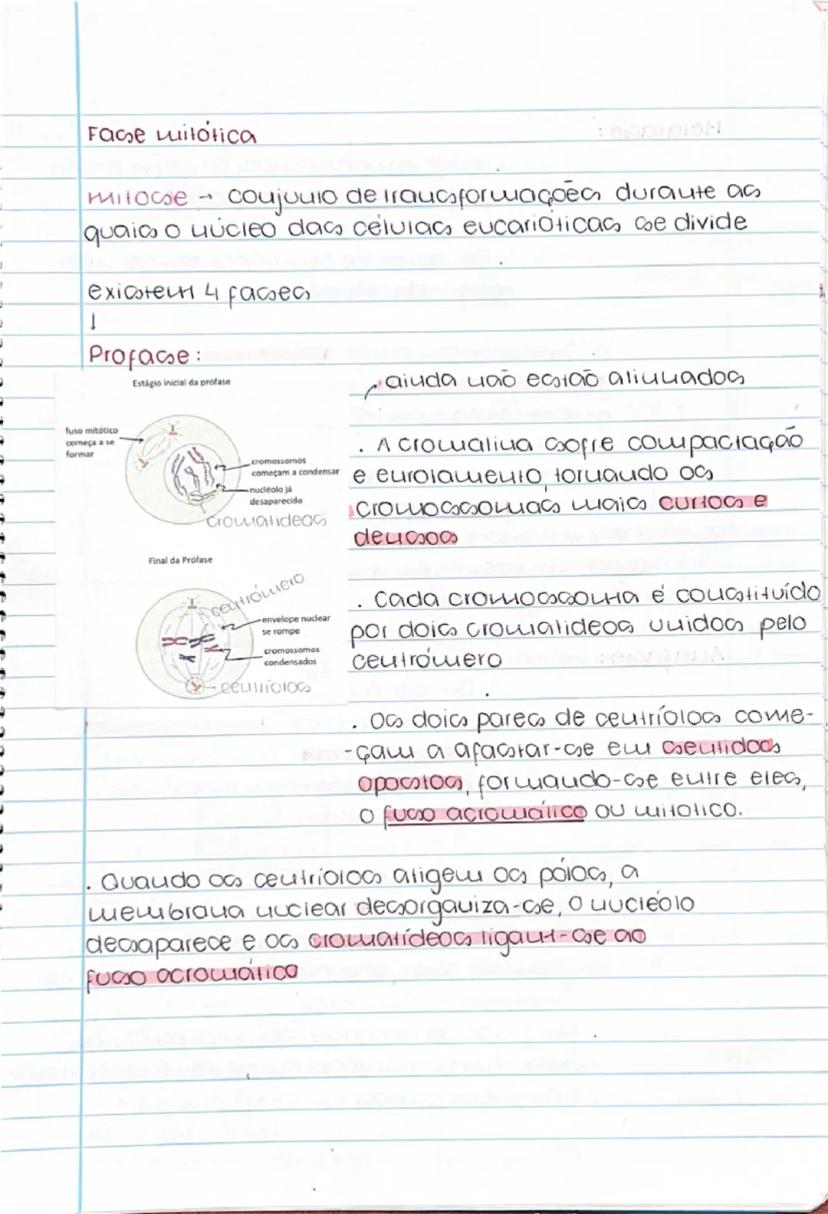 Fase mitótica
mitose → conjunto de transformações durante as
quais o núcleo das células eucarióticas se divide
existem 4 fases
↓
Profase:
Estágio inicial da prófase
fuso mitótico
começa a se
formar
cromossomos
começam a condensar
nucléolo já
desaparecido
cromatídeos
Final da Prófase
centrómero
envelope nuclear
se rompe
cromossomos
condensados
centríolos
ainda não estão alinhados
. A cromatina sofre compactação
e enrolamento, tornando os
cromossomas mais curtos e
densos
. Cada cromossoma é constituído
por dois cromatídeos unidos pelo
centrómero
. Os dois pares de centríolos come-
-çam a afastar-se em sentidos
opostos, formando-se entre eles,
o fuso acromático ou mitótico.
. Quando os centríolos atigem os pólos, a
membrana nuclear desorganiza-se, o nucléolo
desaparece e os cromatídeos ligam-se ao
fuso acromático